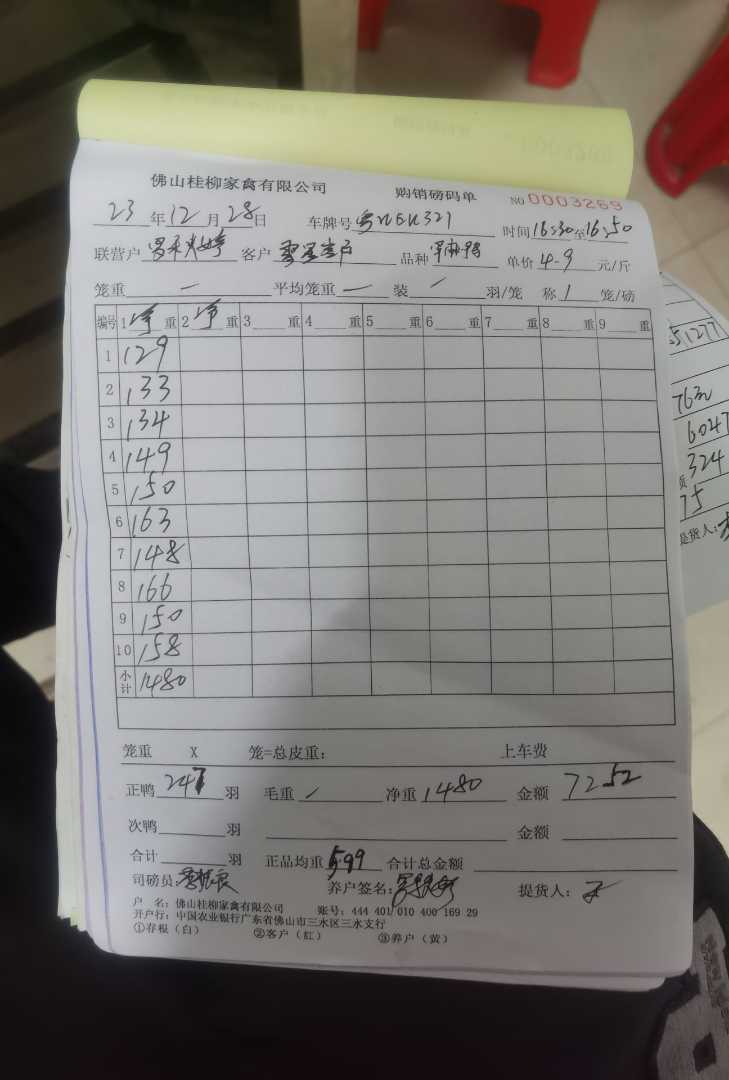 佛山桂柳家禽有限公司 购销磅码单 NO 0003269
23 年 12 月 28 日 车牌号 时间 16:30 至 16:50
联营户 客户 品种 单价 4.9 元/斤
笼重 — 平均笼重 — 装 / 羽/笼 称 1 笼/磅
编号 1 净 重 2 净 重 3 重 4 重 5 重 6 重 7 重 8 重 9 重
1 129
2 133
3 134
4 149
5 150
6 163
7 148
8 166
9 150
10 158
小计 1480
笼重 X 笼=总皮重: 上车费
正鸭 247 羽 毛重 / 净重 1480 金额 7252
次鸭 羽 金额
合计 羽 正品均重 5.99 合计总金额
司磅员: 养户签名: 提货人:
户 名: 佛山桂柳家禽有限公司 账号: 444 401 010 400 169 29
开户行: 中国农业银行广东省佛山市三水区三水支行
①存根（白） ②客户（红） ③养户（黄）
51277
7632
6047
324
75
提货人: